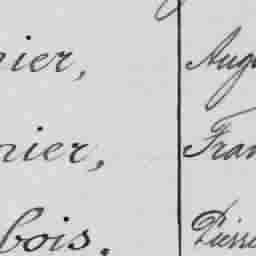 nier, Augu
nier, Fran
bois. Pierre